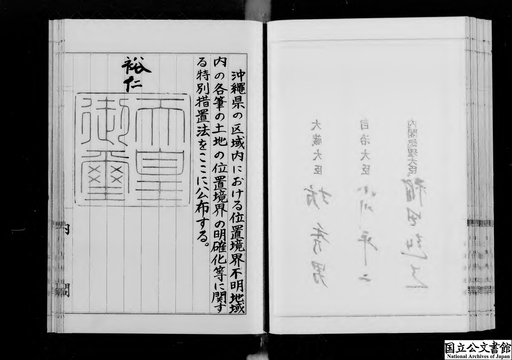 沖縄県の区域内における位置境界不明地域
内の各筆の土地の位置境界の明確化等に関す
る特別措置法をここに公布する。
裕仁
天皇
御璽
内閣
内閣総理大臣
自治大臣
大蔵大臣
国立公文書館
National Archives of Japan